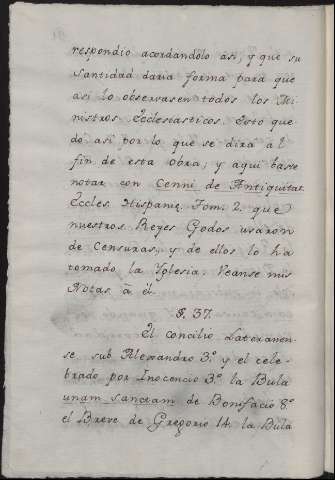 respondio acordandolo asi, y que su
Santidad daria forma para que
asi lo observasen todos los Mi
nistros Ecclesiasticos. Esto que
dó asi por lo que se dirá al
fin de esta obra; y aqui baste
notar con Cenni de Antiquitat.
Eccles. Hispanæ. Tom. 2. que
nuestros Reyes Godos usaron
de Censuras, y de ellos lo ha
tomado la Yglesia. Veanse mis
Notas à él.
§. 37.
El Concilio Lateranen-
se sub Alexandro 3º y el cele-
brado por Inocencio 3º la Bula
unam sanctam de Bonifacio 8º
el Breve de Gregorio 14. la Bula